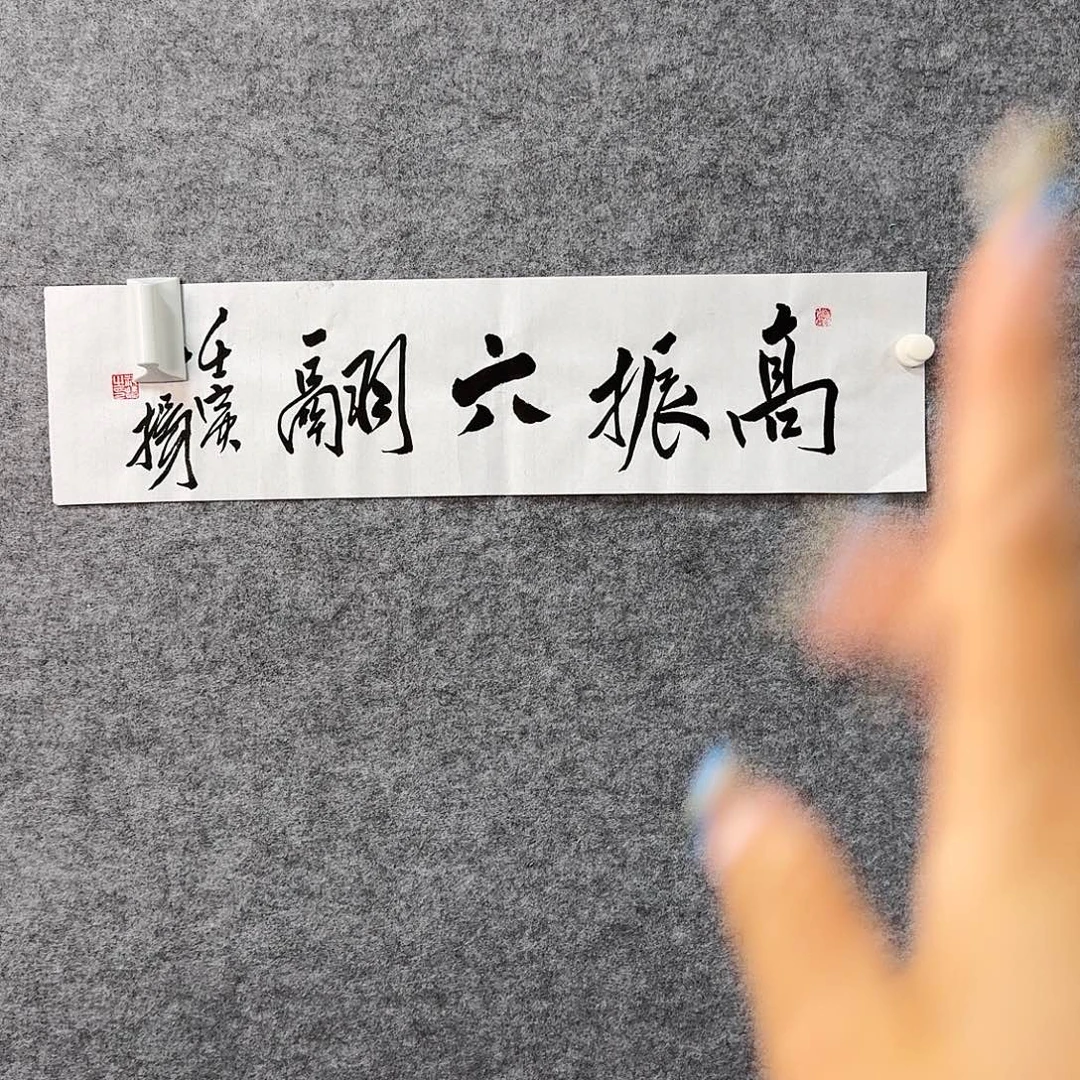 高振六翮
壬寅